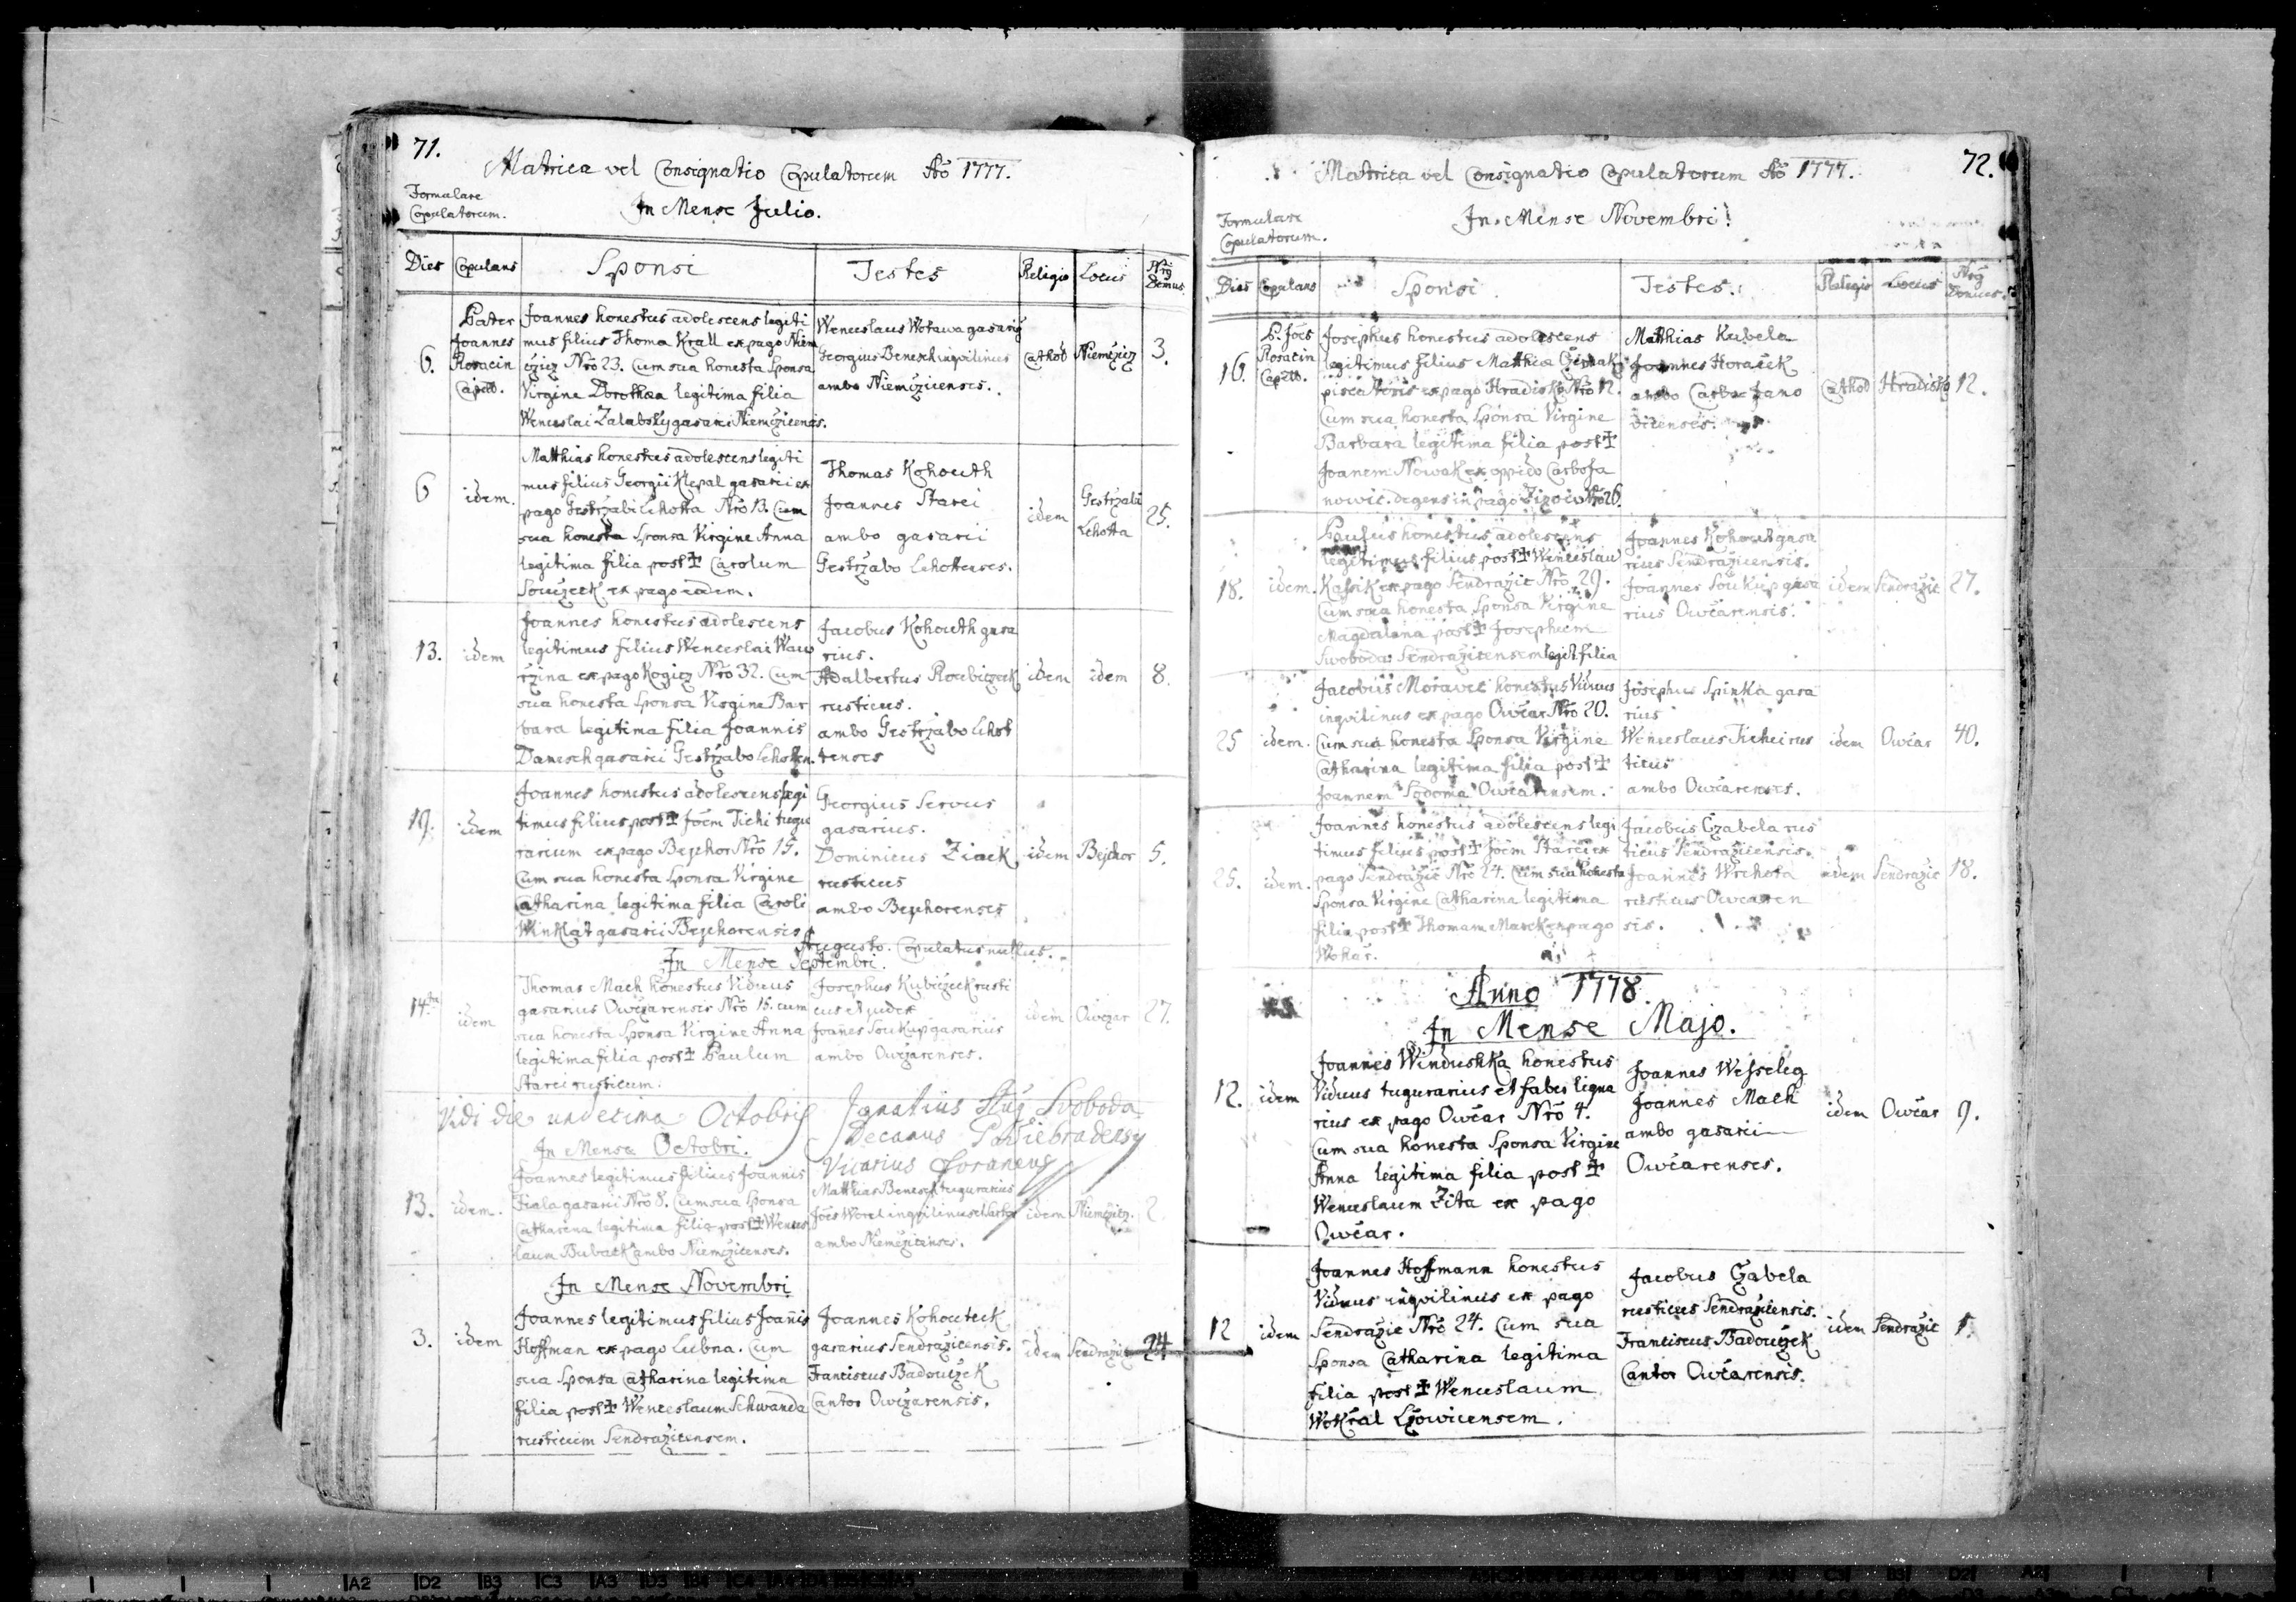 71.
Matrica vel Consignatio Copulatorum Aō 1777.
Formulare
Copulatorum.
In Mense Julio.
Dies Copulans Sponsi Testes Religio Locus Nrg Domus
6. Pater Joannes Rosacin Capell.
Joannes honestus adolescens legiti
mus filius Thoma Krall ex pago Niem
czicz Nrō 23. Cum sua honesta Sponsa
Virgine Dorothea legitima filia
Wenceslai Zalabsky gasarii Niemczicensis.
Wenceslaus Wotawa gasarig
Georgius Benesch inqvilinus
ambo Niemczicenses.
Cathol Niemczicz 3.
6 idem.
Matthias honestus adolescens legiti
mus filius Georgii Klepal gasarii ex
pago Gestrzabi Lehotta Nrō 13. Cum
sua honesta Sponsa Virgine Anna
legitima filia post ✝ Carolum
Souczeck ex pago eadem.
Thomas Kohouth
Joannes Starei
ambo gasarii
Gestrzabo Lehottenses.
idem Gestrzabi
Lehotta 25.
13. idem
Joannes honestus adolescens
legitimus filius Wenceslai Waw
rzina ex pago Kogicz Nrō 32. Cum
sua honesta Sponsa Virgine Bar
bara legitima filia Joannis
Danesch gasarii Gestrzabo Lehotten.
Jacobus Kohouth gasa
rius.
Adalbertus Roubiczeck
rusticus.
ambo Gestrzabo Lehot
tenses
idem idem 8.
19. idem
Joannes honestus adolescens legi
timus filius post ✝ Joēm Tichi tugu
rarium ex pago Bejchor Nrō 15.
Cum sua honesta Sponsa Virgine
Catharina legitima filia Caroli
Winklat gasarii Bejchorensis
Georgius Servus
gasarius.
Dominicus Ziack
rusticus
ambo Bejchorenses
idem Bejchor 5.
Augusto. Copulatus nullus.
In Mense Septembri.
14 idem
Thomas Mach honestus Viduus
gasarius Owczarensis Nrō 15. cum
sua honesta Sponsa Virgine Anna
legitima filia post ✝ Paulum
Starei rusticum.
Josephus Kubiczeck rusti
cus et judex
Joannes Soukup gasarius
ambo Owczarenses.
idem Owczar 27.
Vidi die undecima Octobris Ignatius Svoboda
Decanus
Vicarius foraneus
In Mense Octobri.
13. idem.
Joannes legitimus filius Joannis
Fiala gasarii Nrō 8. Cum sua Sponsa
Catharina legitima filia post ✝ Wences
laum Buback ambo Niemczicenses.
Matthias Benesch tugurarius
Joēs Worel inqvilinus
ambo Niemczicenses.
idem Niemczicz. 2.
In Mense Novembri
3. idem
Joannes legitimus filius Joānis
Hoffman ex pago Lubna. Cum
sua Sponsa Catharina legitima
filia post ✝ Wenceslaum Schwanda
rusticum Sendrazicensem.
Joannes Kohouteck
gasarius Sendrazicensis.
Franciscus Badouczek
Cantor Owczarensis.
idem Sendrazic 24
72.
Matrica vel Consignatio Copulatorum Aō 1777.
Formulare
Copulatorum.
In Mense Novembri
Dies Copulans Sponsi Testes. Religio Locus Nrg Domus.
16. P. Joēs Rosacin Capell.
Josephus honestus adolescens
legitimus filius Matthiæ
piscatoris ex pago Hradisko Nrō 12.
Cum sua honesta Sponsa Virgine
Barbara legitima filia post ✝
Joanem Nowak ex oppido Carbofa
nowic. degens in pago Nrō 26.
Matthias Kubela
Joannes Horacek
ambo Carbo Jano
vicenses.
Cathol Hradisko 12.
18. idem.
Paulus honestus adolescens
legitimus filius post ✝ Wenceslau
Kassik ex pago Sendrazic Nrō 29.
Cum sua honesta Sponsa Virgine
Magdalena post ✝ Josephum
Swoboda Sendrazicensem legit. filia
Joannes Kohout gasa
rius Sendrazicensis.
Joannes Soukup gasa
rius Owčarensis.
idem Sendrazic 27.
25 idem.
Jacobus Moravec honestus Viduus
inqvilinus ex pago Owčar Nrō 20.
Cum sua honesta Sponsa Virgine
Catharina legitima filia post ✝
Joannem Sodoma Owčarensem.
Josephus Spinka gasa
rius
Wenceslaus Tichei rus
ticus
ambo Owčarenses.
idem Owčar 40.
25. idem.
Joannes honestus adolescens legi
timus filius post ✝ Joēm Starei ex
pago Sendrazic Nrō 24. Cum sua honesta
Sponsa Virgine Catharina legitima
filia post ✝ Thomam Mareck ex pago
Wokar.
Jacobus Czabela rus
ticus Sendrazicensis.
Joannes Wrchota
rusticus Owčaren
sis.
idem Sendrazic 18.
Anno 1778.
In Mense Majo.
12. idem
Joannes Windushka honestus
Viduus tugurarius et faber ligna
rius ex pago Owčar Nrō 4.
Cum sua honesta Sponsa Virgine
Anna legitima filia post ✝
Wenceslaum Zita ex pago
Owčar.
Joannes Wesseleg
Joannes Mach
ambo gasarii
Owčarenses.
idem Owčar 9.
12 idem
Joannes Hoffmann honestus
Viduus inqvilinus ex pago
Sendrazic Nrō 24. Cum sua
Sponsa Catharina legitima
filia post ✝ Wenceslaum
Wokral Lzowicensem.
Jacobus Czabela
rusticus Sendrazicensis.
Franciscus Badouczek
Cantor Owčarensis.
idem Sendrazic 1.